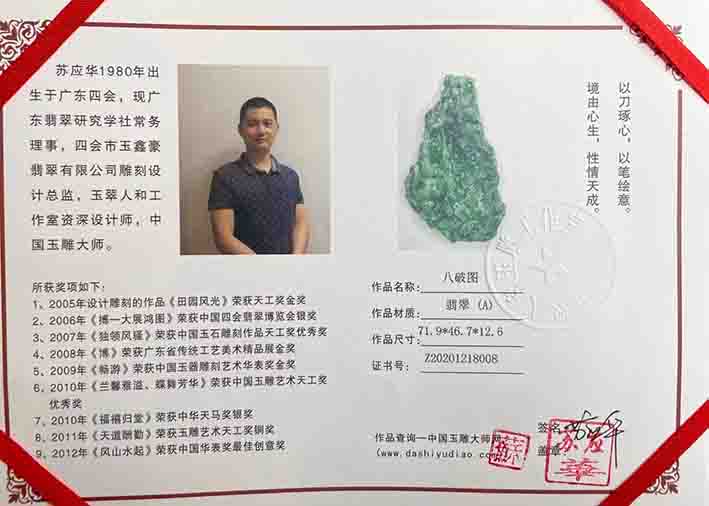 苏应华1980年出
生于广东四会，现广
东翡翠研究学社常务
理事，四会市玉鑫豪
翡翠有限公司雕刻设
计总监，玉翠人和工
作室资深设计师，中
国玉雕大师。
以刀琢心，以笔绘意。
境由心生，性情天成。
所获奖项如下：
1、2005年设计雕刻的作品《田园风光》荣获天工奖金奖
2、2006年《搏一大展鸿图》荣获中国四会翡翠博览会银奖
3、2007年《独领风骚》荣获中国玉石雕刻作品天工奖优秀奖
4、2008年《博》荣获广东省传统工艺美术精品展金奖
5、2009年《畅游》荣获中国玉器雕刻艺术华表奖金奖
6、2010年《兰馨雅溢、蝶舞芳华》荣获中国玉雕艺术天工奖
优秀奖
7、2010年《福禧归堂》荣获中华天马奖银奖
8、2011年《天道酬勤》荣获玉雕艺术天工奖铜奖
9、2012年《风山水起》荣获中国华表奖最佳创意奖
作品名称：八破图
作品材质：翡翠 (A)
作品尺寸：71.9*46.7*12.6
证书号：Z20201218008
作品查询一中国玉雕大师网
(www.dashiyudiao.com)
签名
盖章
苏应华